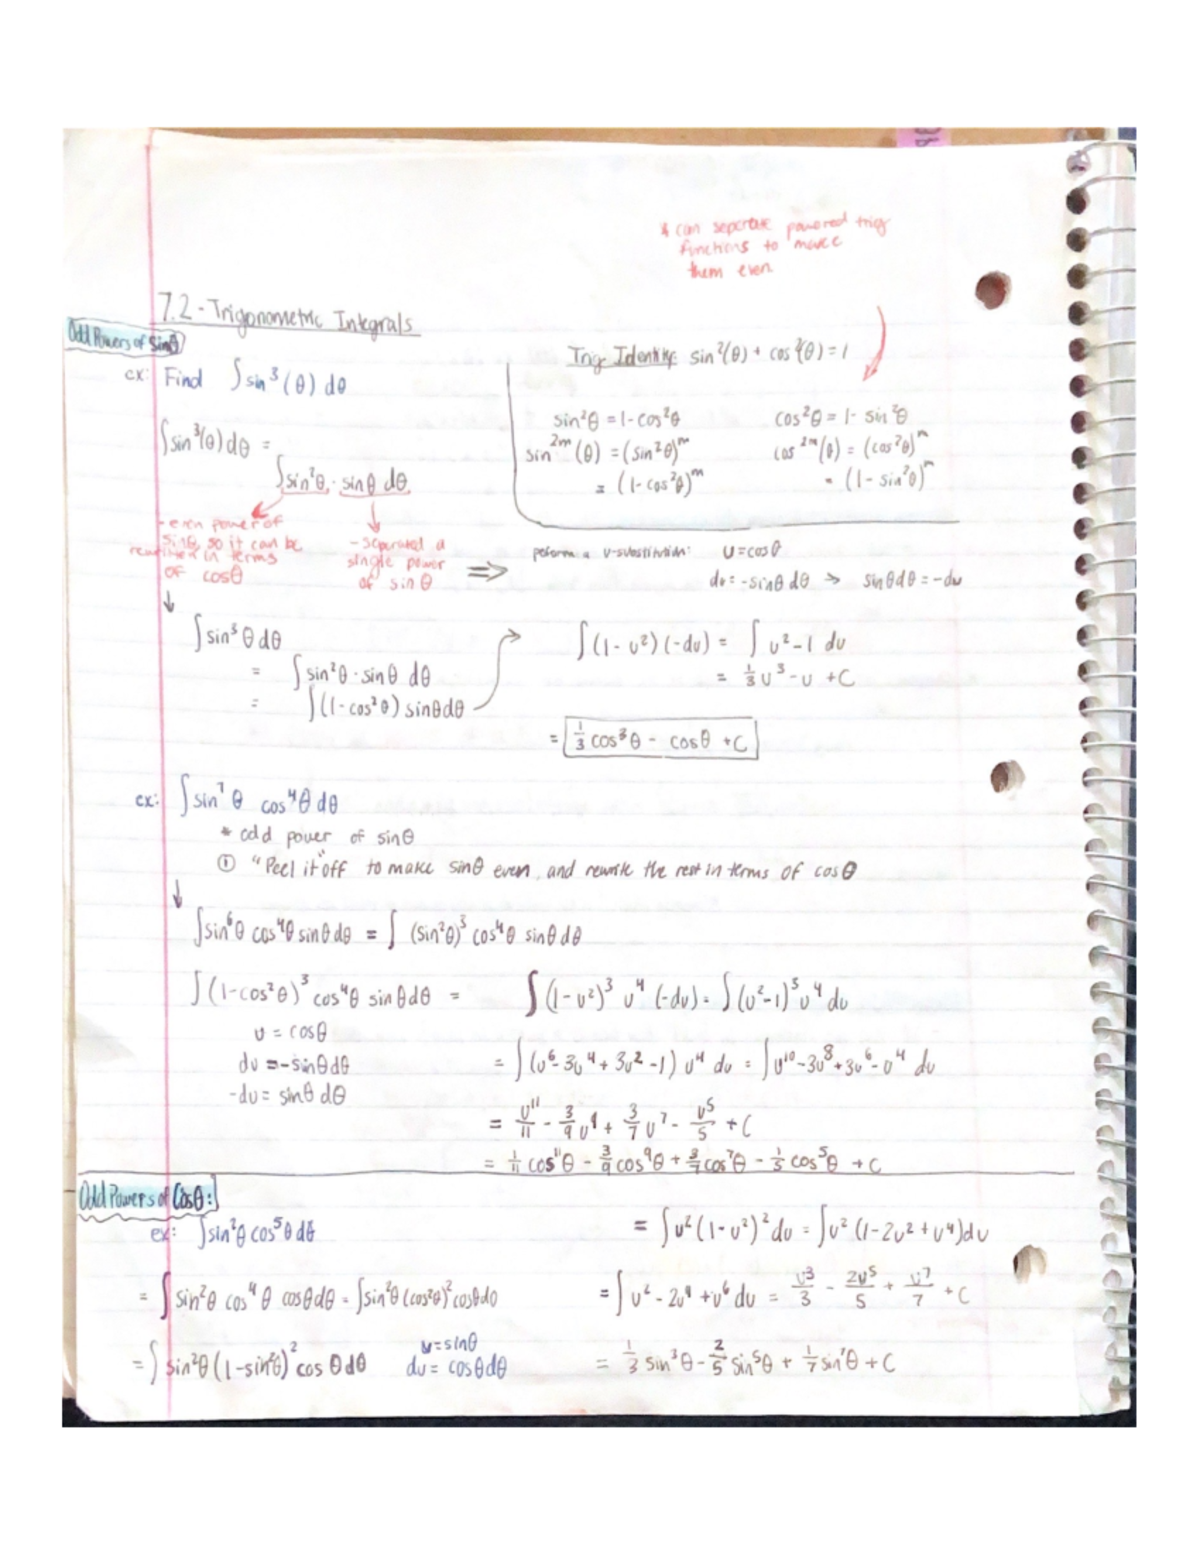 * can seperate powered trig
functions to make
them even
7.2 - Trigonometric Integrals
Odd Powers of Sinθ
ex: Find ∫sin³(θ) dθ
Trig Identity: sin²(θ) + cos²(θ) = 1
sin²θ = 1 - cos²θ
sin²ᵐ(θ) = (sin²θ)ᵐ
= (1 - cos²θ)ᵐ
cos²θ = 1 - sin²θ
cos²ᵐ(θ) = (cos²θ)ᵐ
= (1 - sin²θ)ᵐ
∫sin³(θ) dθ =
∫sin²θ · sinθ dθ
- even power of
sinθ, so it can be
rewritten in terms
of cosθ
- seperated a
single power
of sin θ
⇒
perform a u-substitution: u = cosθ
du = -sinθ dθ → sinθdθ = -du
∫sin³θ dθ
= ∫sin²θ · sinθ dθ
= ∫(1 - cos²θ) sinθdθ
∫(1 - u²)(-du) = ∫u² - 1 du
= 1/3 u³ - u + C
= 1/3 cos³θ - cosθ + C
ex: ∫sin⁷θ cos⁴θ dθ
* odd power of sinθ
① "Peel it" off to make sinθ even, and rewrite the rest in terms of cosθ
∫sin⁶θ cos⁴θ sinθ dθ = ∫(sin²θ)³ cos⁴θ sinθ dθ
∫(1-cos²θ)³ cos⁴θ sinθdθ = ∫(1-u²)³ u⁴ (-du) = ∫(u²-1)³ u⁴ du
u = cosθ
du = -sinθdθ
-du = sinθ dθ
= ∫(u⁶ - 3u⁴ + 3u² - 1) u⁴ du = ∫u¹⁰ - 3u⁸ + 3u⁶ - u⁴ du
= u¹¹/11 - 3/9 u⁹ + 3/7 u⁷ - u⁵/5 + C
= 1/11 cos¹¹θ - 3/9 cos⁹θ + 3/7 cos⁷θ - 1/5 cos⁵θ + C
Odd Powers of Cosθ:
ex: ∫sin²θ cos⁵θ dθ
= ∫sin²θ cos⁴θ cosθdθ = ∫sin²θ (cos²θ)² cosθdθ
= ∫sin²θ (1-sin²θ)² cosθdθ
u = sinθ
du = cosθdθ
= ∫u² (1-u²)² du = ∫u² (1-2u² + u⁴)du
= ∫u² - 2u⁴ + u⁶ du = u³/3 - 2u⁵/5 + u⁷/7 + C
= 1/3 sin³θ - 2/5 sin⁵θ + 1/7 sin⁷θ + C